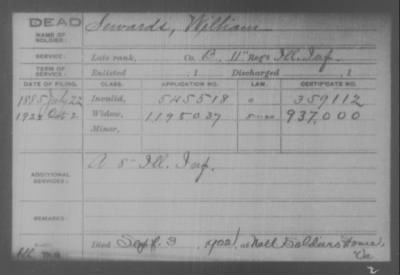 DEAD
NAME OF SOLDIER:
Sewards, William
SERVICE:
Late rank, Co. B, 11" Reg't Ill. Inf.
TERM OF SERVICE:
Enlisted , 1 Discharged , 1
DATE OF FILING. CLASS. APPLICATION NO. LAW. CERTIFICATE NO.
1885 July 22 Invalid, 545518 359112
Oct 2 Widow, 1195037 937,000
Minor,
ADDITIONAL SERVICES:
A 8" Ill. Inf.
REMARKS:
Died Sept. 3, at Natl Soldiers Home,
2